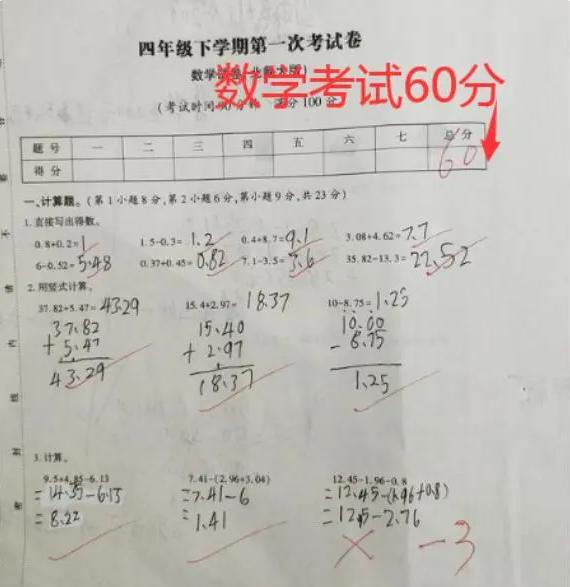 四年级下学期第一次考试卷
数学试卷(北师大版)
数学考试60分
(考试时间90分钟 满分100分)
题号 一 二 三 四 五 六 七 总分
得分 60
一、计算题。(第1小题8分,第2小题6分,第3小题9分,共23分)
1.直接写出得数。
0.8+0.2=1 1.5-0.3=1.2 0.4+8.7=9.1 3.08+4.62=7.7
6-0.52=5.48 0.37+0.45=0.82 7.1-3.5=3.6 35.82-13.3=22.52
2.用竖式计算。
37.82+5.47=43.29 15.4+2.97=18.37 10-8.75=1.25
37.82 15.40 10.00
+ 5.47 + 2.97 - 8.75
43.29 18.37 1.25
3.计算。
9.5+4.85-6.13 7.41-(2.96+3.04) 12.45-1.96-0.8
=14.35-6.13 =7.41-6 =12.45-(1.96+0.8)
=8.22 =1.41 =12.5-2.76
-3